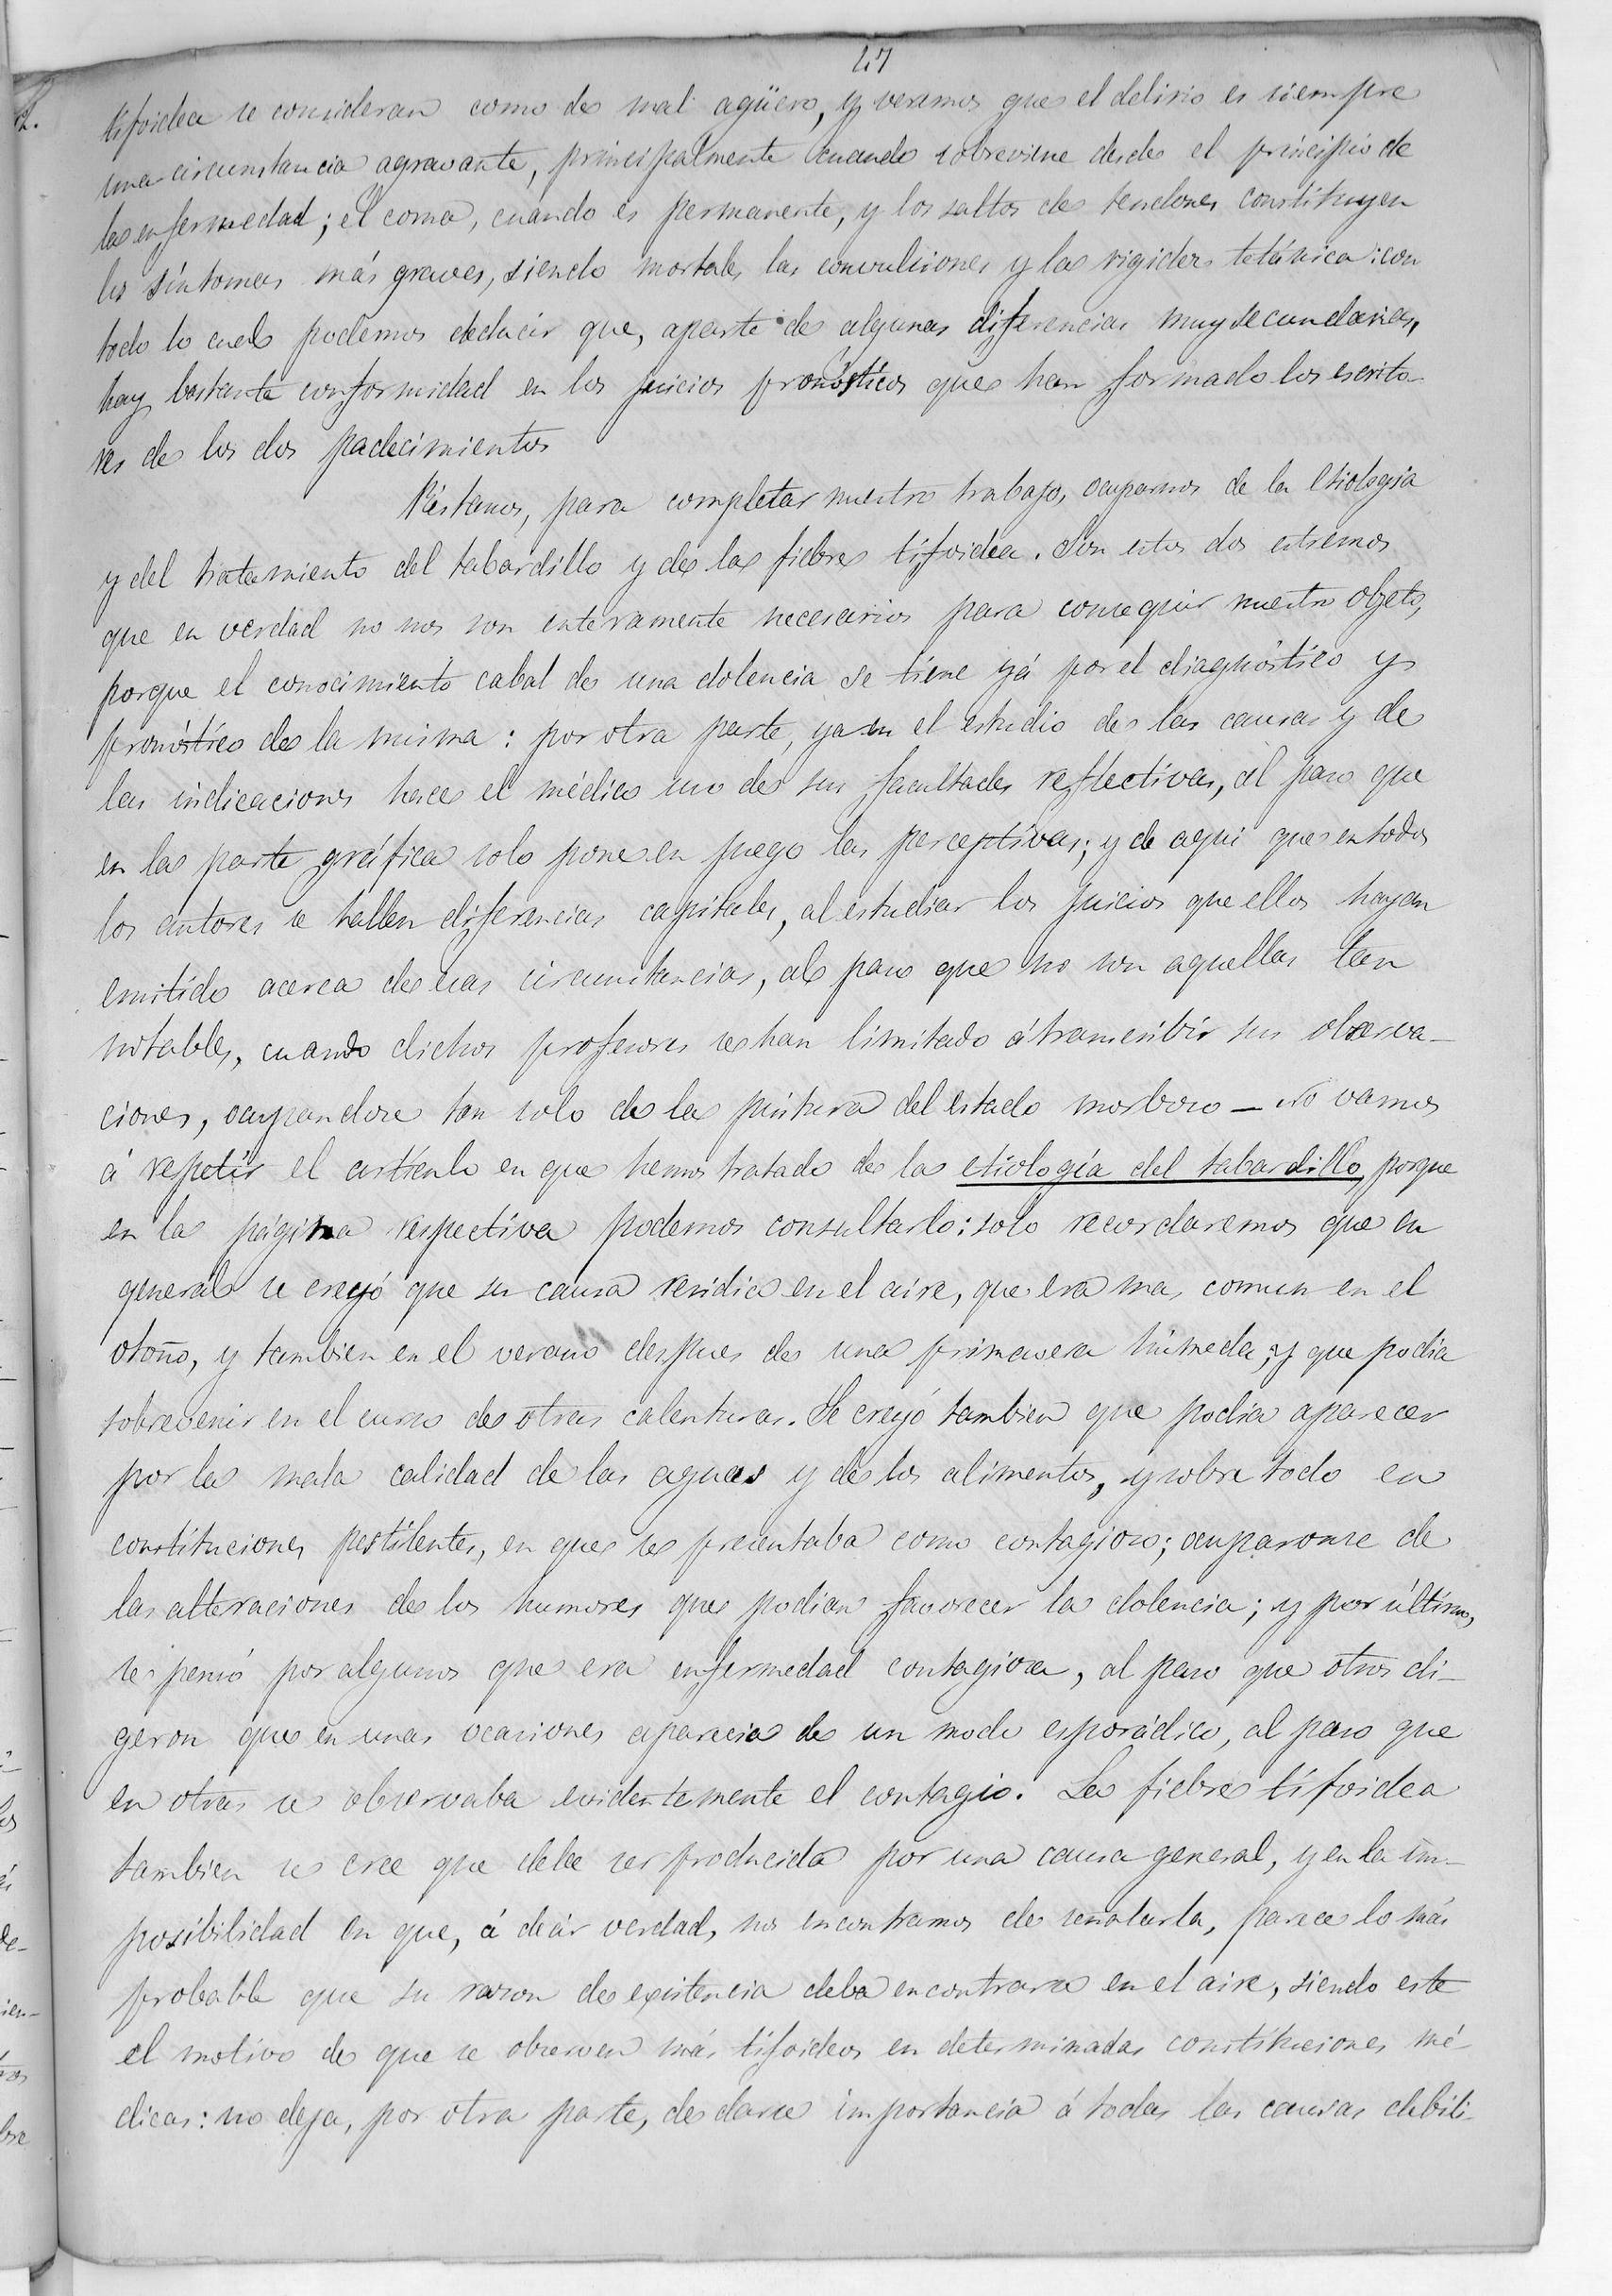 47
tifoidea se consideran como de mal agüero, y veremos que el delirio es siempre
una circunstancia agravante, principalmente cuando sobreviene desde el principio de
la enfermedad; el coma, cuando es permanente, y los saltos de tendones constituyen
los síntomas más graves, siendo mortales las convulsiones y la rigidez tetánica: con
todo lo cual podemos deducir que, aparte de algunas diferencias muy secundarias,
hay bastante conformidad en los juicios pronósticos que han formado los escrito-
res de los dos padecimientos
Réstanos, para completar nuestro trabajo, ocuparnos de la etiología
y del tratamiento del tabardillo y de la fiebre tifoidea. Son estos dos estremos
que en verdad no nos son enteramente necesarios para conseguir nuestro objeto,
porque el conocimiento cabal de una dolencia se tiene yá por el diagnóstico y
pronóstico de la misma: por otra parte, ya en el estudio de las causas y de
las indicaciones hace el médico uso de sus facultades reflectivas, al paso que
en la parte gráfica solo pone en juego las perceptivas; y de aqui que en todos
los autores se hallen diferencias capitales, al estudiar los juicios que ellos hayan
emitido acerca de esas circunstancias, al paso que no son aquellas tan
notables, cuando dichos profesores se han limitado á transcribir sus observa-
ciones, ocupandose tan solo de la pintura del estado morboso — No vamos
á repetir el artículo en que hemos tratado de la etiología del tabardillo, porque
en la página respectiva podemos consultarlo: solo recordaremos que en
general se creyó que su causa residia en el aire, que era mas comun en el
otoño, y tambien en el verano despues de una primavera húmeda; y que podia
sobrevenir en el curso de otras calenturas. Se creyó tambien que podia aparecer
por la mala calidad de las aguas y de los alimentos, y sobre todo en
constituciones pestilentes, en que se presentaba como contagioso; ocuparonse de
las alteraciones de los humores que podian favorecer la dolencia; y por último,
se pensó por algunos que era enfermedad contagiosa, al paso que otros di-
geron que en unas ocasiones aparecia de un modo esporádico, al paso que
en otras se observaba evidentemente el contagio. La fiebre tifoidea
tambien se cree que debe ser producida por una causa general, y en la im-
posibilidad en que, á decir verdad, nos encontramos de señalarla, parece lo más
probable que su razon de existencia deba encontrarse en el aire, siendo este
el motivo de que se observen más tifoideas en determinadas constituciones mé-
dicas: no deja, por otra parte, de darse importancia á todas las causas debili-